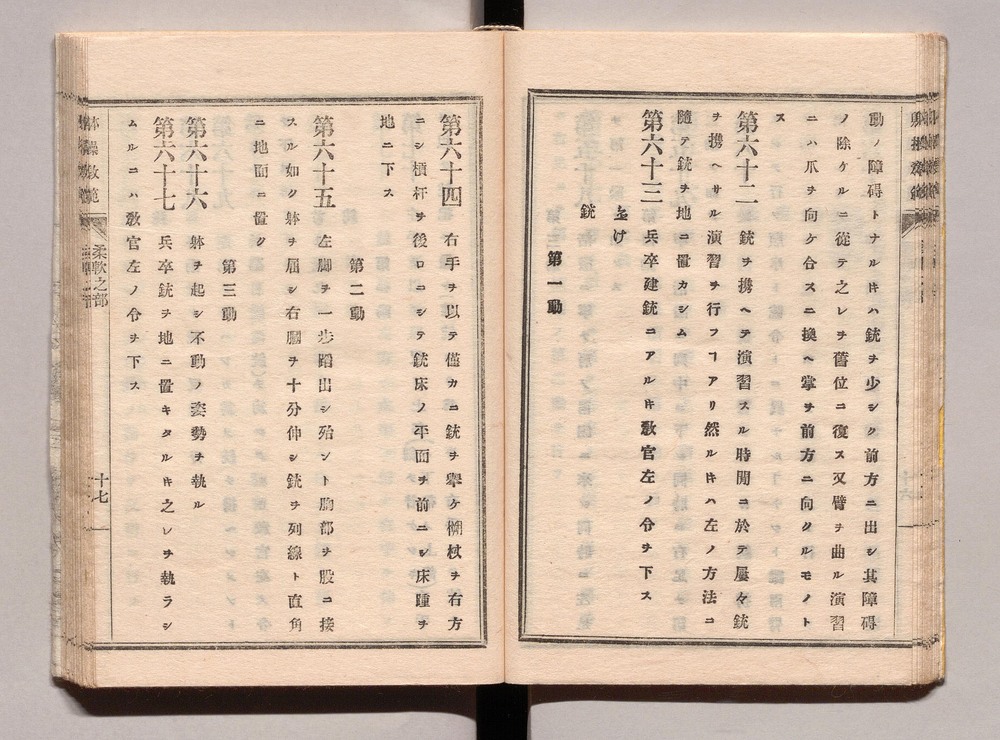 動ノ障碍トナルキハ銃ヲ少シク前方ニ出シ其障碍
ノ除ケルニ從テ之レヲ舊位ニ復ス又臂ヲ曲ル演習
ニハ爪ヲ向ケ合スニ換ヘ掌ヲ前方ニ向クルモノト
ス
第六十二 銃ヲ携ヘテ演習スル時間ニ於テ屢々銃
ヲ携ヘサル演習ヲ行フヿアリ然ルキハ左ノ方法ニ
隨テ銃ヲ地ニ置カシム
第六十三 兵卒建銃ニアルキ敎官左ノ令ヲ下ス
置け
銃
第一動
第六十四 右手ヲ以テ僅カニ銃ヲ擧ケ棚杖ヲ右方
ニシ槓杆ヲ後ロニシテ銃床ノ平面ヲ前ニシ床踵ヲ
地ニ下ス
第二動
第六十五 左脚ヲ一歩蹈出シ殆ント胸部ヲ股ニ接
スル如ク躰ヲ屈シ右膕ヲ十分伸シ銃ヲ列線ト直角
ニ地面ニ置ク
第三動
第六十六 躰ヲ起シ不動ノ姿勢ヲ執ル
第六十七 兵卒銃ヲ地ニ置キタルキ之レヲ執ラシ
ムルニハ敎官左ノ令ヲ下ス
操敎範
柔軟之部
十七